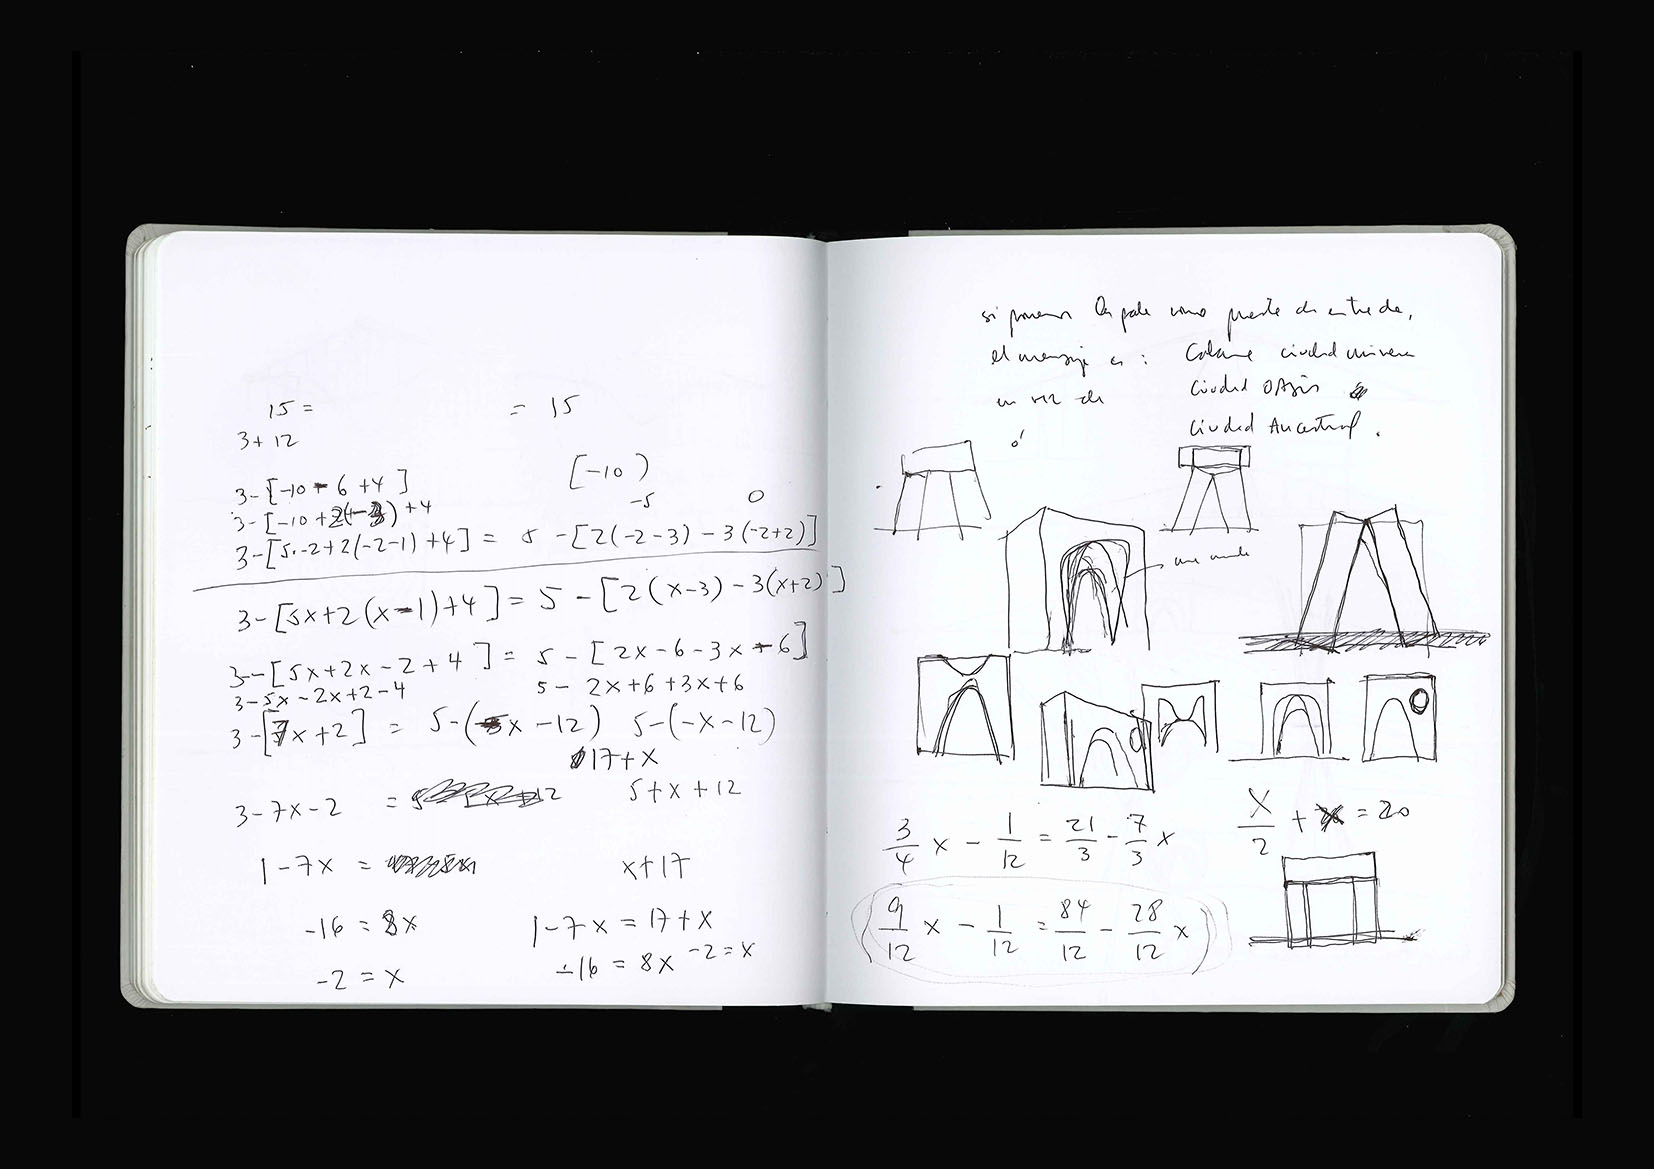 15 = = 15
3 + 12
3-[-10 - 6 + 4] [-10)
-5 0
3-[-10+2(-3)+4
3-[5·-2+2(-2-1)+4] = 5 -[2(-2-3) - 3(-2+2)]
3-[5x+2(x-1)+4] = 5 - [2(x-3) - 3(x+2)]
3-[5x+2x-2+4] = 5 - [2x-6-3x-6]
3-5x-2x+2-4 5 - 2x+6+3x+6
3-[7x+2] = 5-(x-12) 5-(-x-12)
17+x
3-7x-2 = 5+x+12
1-7x = x+17
-16 = 8x 1-7x = 17+x
-16 = 8x -2=x
-2 = x
si ponemos como puerta de entrada,
el mensaje es : Calama ciudad minera
en vez de ciudad oasis
ó ciudad Ancestral.
3/4 x - 1/12 = 21/3 - 7/3 x
x/2 + x = 20
(9/12 x - 1/12 = 84/12 - 28/12 x)